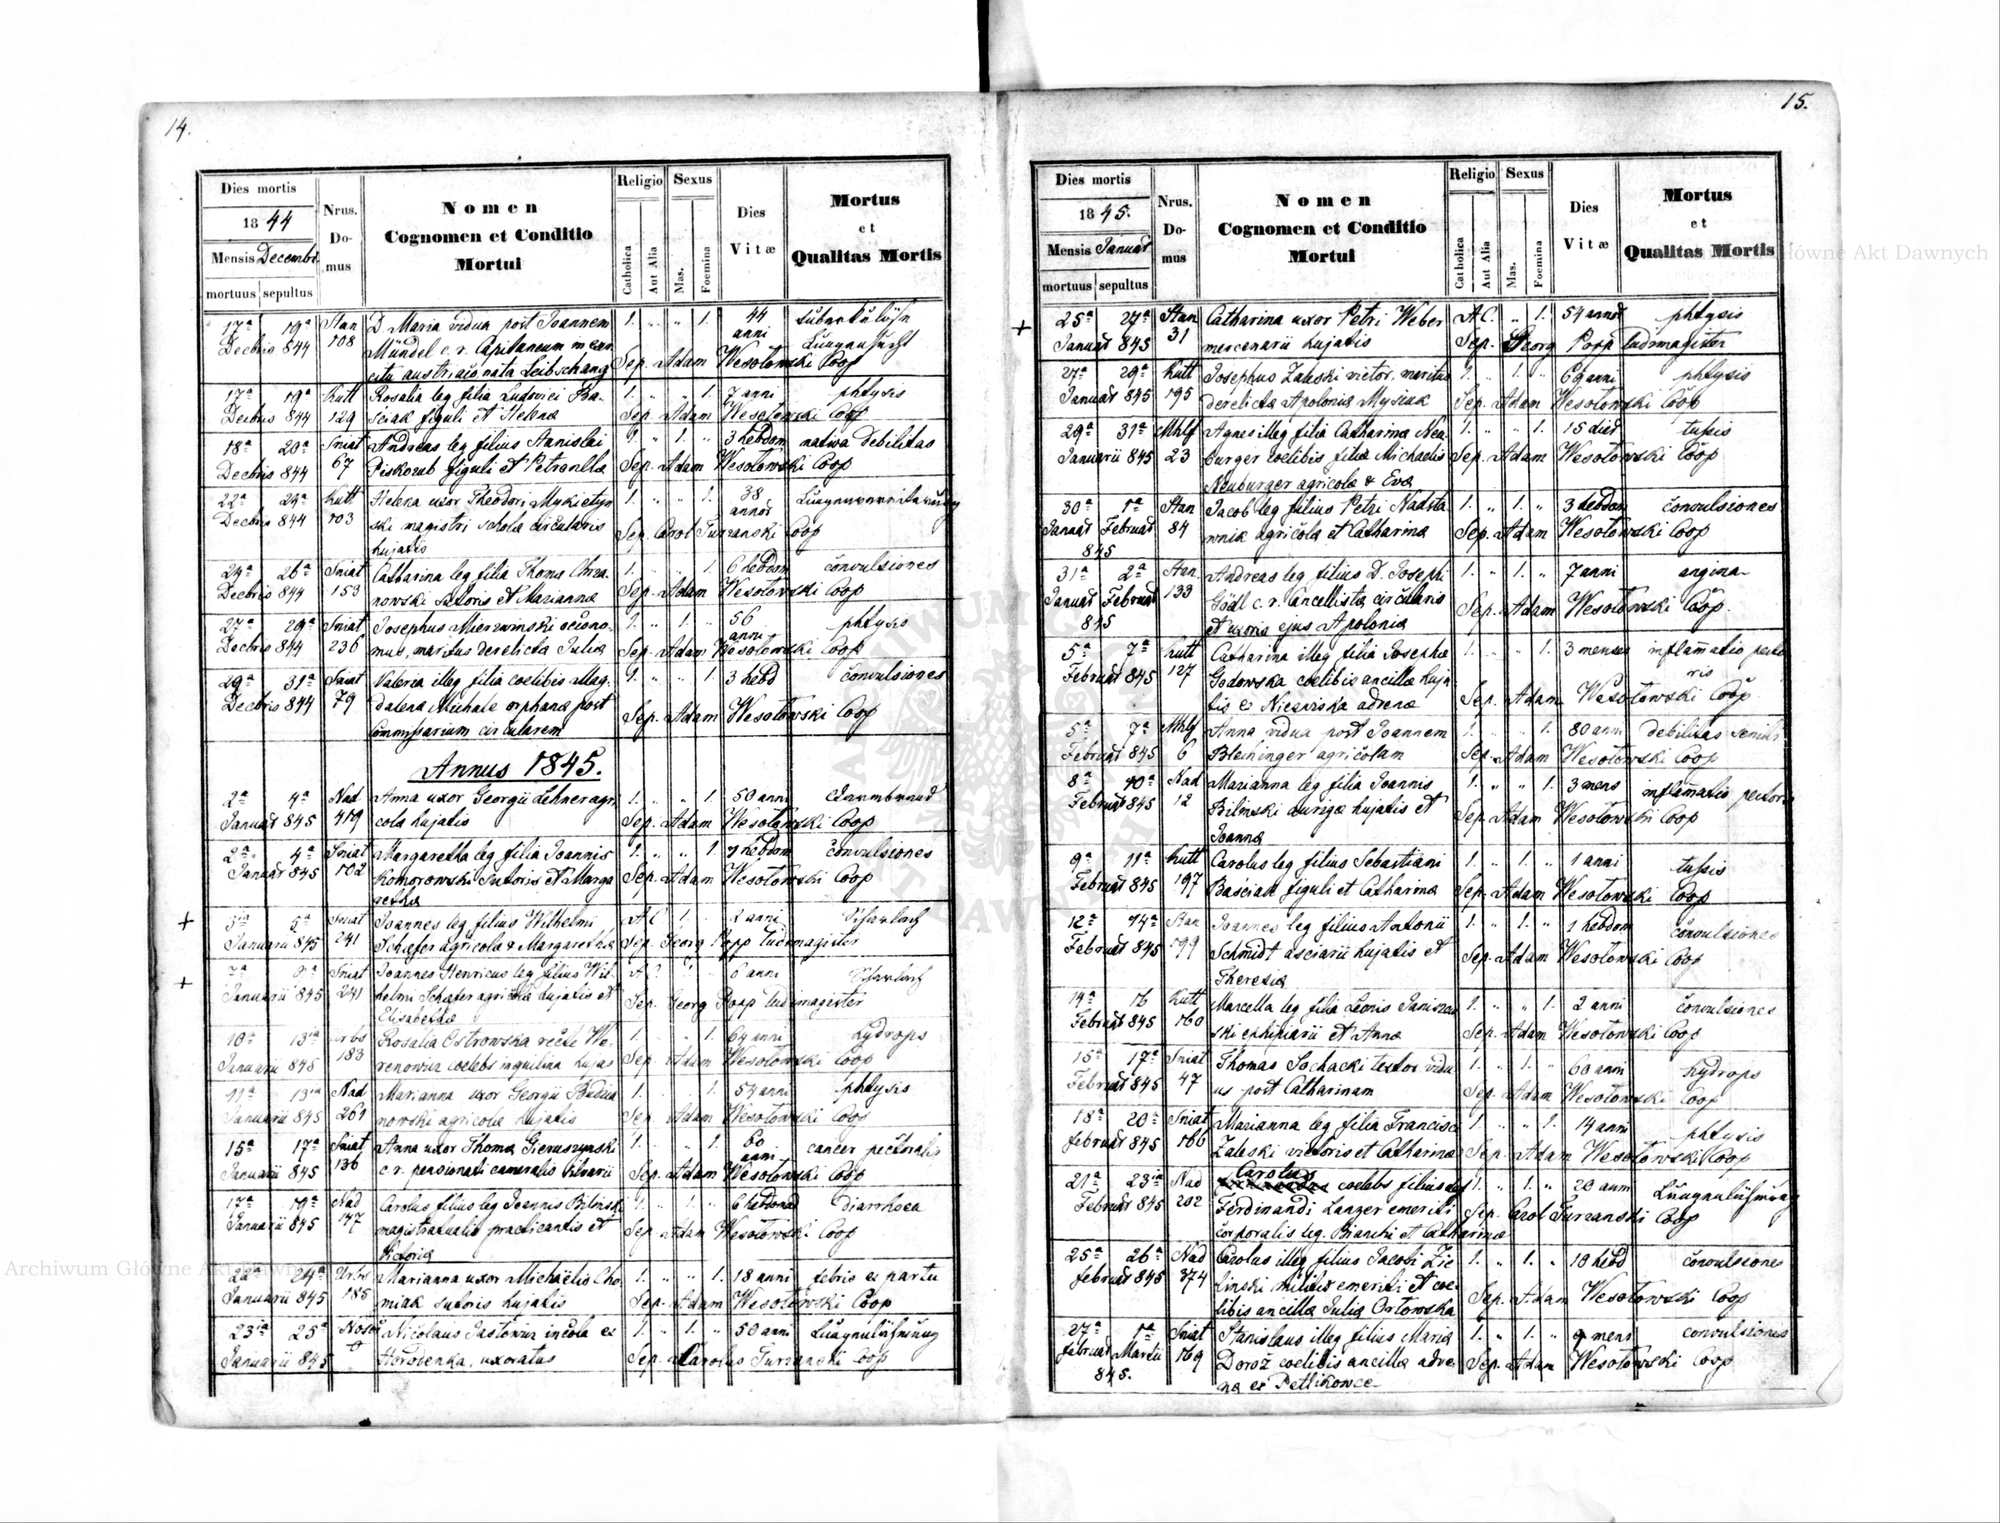 14.
Dies mortis
1844
Mensis Decembr
mortuus sepultus
Nrus. Do- mus
Nomen
Cognomen et Conditio
Mortui
Religio
Catholica
Aut Alia
Sexus
Mas.
Foemina
Dies
Vitæ
Mortus
et
Qualitas Mortis
17a 19a Stan D. Maria vidua post Joannem 1. „ „ 1. 44
Decbris 844 108 Mündel c. r. Capitaneum in exer anni
citu austriaco nata Leibschang Sep. Adam Wesołowski Coop
17a 19a Kutt Rosalia leg filia Ludovici Ba- 1. „ „ 1. 7 anni phtysis
Decbris 844 129 sciak figuli et Helena Sep. Adam Wesołowski Coop
18a 20a Sniat Andreas leg filius Stanislai 1. „ 1. „ 3 hebdom nativa debilitas
Decbris 844 67 Piskozub figuli et Petronella Sep. Adam Wesołowski Coop
22a 24a Kutt Helena uxor Theodori Mykietyn 1. „ „ 1. 38
Decbris 844 103 ski magistri schola circularis annos
hujatis Sep. Carol Turzanski Coop
24a 26a Sniat Catharina leg filia Thoma Chrza- 1. „ „ 1. 6 hebdom convulsiones
Decbris 844 153 nowski sutoris et Marianna Sep. Adam Wesołowski Coop
27a 29a Sniat Josephus Mierzwinski oecono- 1. „ 1. „ 56 phtysis
Decbris 844 236 mus, maritus derelicta Julia anni Sep. Adam Wesołowski Coop
29a 31a Sniat Valeria illeg filia coelibis Mag- 1. „ „ 1. 3 hebd convulsiones
Decbris 844 79 dalena Michale orphana post
Commissarium circularem Sep. Adam Wesołowski Coop
Annus 1845.
2a 4a Nad Anna uxor Georgii Lehner agri 1. „ „ 1. 50 anni
Januar 845 419 cola hujatis Sep. Adam Wesołowski Coop
2a 4a Sniat Margaretha leg filia Joannis 1. „ „ 1. hebdom convulsiones
Januar 845 102 Komorowski sutoris et Marga
retha Sep. Adam Wesołowski Coop
+ 3ia 5a Sniat Joannes leg filius Wilhelmi A.C. 1. 2 anni Scharlach
Januarii 845 241 Schæfer agricola & Margaretha Sep. Georg Popp Ludimagister
+ Sniat Joannes Henricus leg filius Wil- A.C. 6 anni Scharlach
Januarii 845 241 helmi Schæfer agricola hujatis et
Elisabetha Sep. Georg Popp Ludimagister
10a 13ia Urbs Rosalia Ostrowska recte Wo- 1. 1. 64 anni hydrops
Januarii 845 183 renowicz coelebs inquilina hujas Sep. Adam Wesołowski Coop
11a 13ia Nad Marianna uxor Georgii Budua 1. 1. 54 anni phtysis
Januarii 845 261 nowski agricola hujatis Sep. Adam Wesołowski Coop
15a 17a Sniat Anna uxor Thoma Gieruszynski 1. 1. 60 cancer pectoralis
Januarii 845 136 c. r. pensionati cameralis anni Sep. Adam Wesołowski Coop
17a 19a Nad Carolus filius leg Joannis Bilinsk 1. „ 6 hebdomad diarrhoea
Januarii 845 147 magistratualis practicantis et
Victoria Sep. Adam Wesołowski Coop
22a 24a Urbs Marianna uxor Michaëlis Cho 1. „ „ 1. 18 anni febris ex partu
Januarii 845 185 miak sutoris hujatis Sep. Adam Wesołowski Coop
23ia 25a Nicolaus Jastowicz incola ex 1. „ 1. „ 50 anni
Januarii 845 Horodenka, uxoratus Sep. Carolus Turzanski Coop
15.
Dies mortis
1845.
Mensis Januar
mortuus sepultus
Nrus. Do- mus
Nomen
Cognomen et Conditio
Mortui
Religio
Catholica
Aut Alia
Sexus
Mas.
Foemina
Dies
Vitæ
Mortus
et
Qualitas Mortis
+ 25a 27a Stan Catharina uxor Petri Weber A.C. „ 1. 54 annos phtysis
Januar 845 31 mercenarii hujatis Sep. Georg Popp Ludimagister
27a 29a Kutt Josephus Zaleski victor, maritus 1. „ 1. „ 69 anni phtysis
Januar 845 195 derelicta Apolonia Mysiak Sep. Adam Wesołowski Coop
29a 31a Mhlf Agnes illeg filia Catharina Neu 1. „ „ 1. 15 dies tussis
Januarii 845 23 burger coelibis filia Michaelis Sep. Adam Wesołowski Coop
Neuburger agricola & Eva
30a 1a Stan Jacob leg filius Petri Nadsta 1. „ 1. „ 3 hebdom convulsiones
Januar Februar 84 wniak agricola et Catharina Sep. Adam Wesołowski Coop
845
31a 2a Stan. Andreas leg filius D. Josephi 1. „ 1. „ 7 anni angina
Januar Februar 133 Gödl c. r. Cancellista circularis Sep. Adam Wesołowski Coop.
845 et uxoris ejus Apolonia
5a 7a Kutt Catharina illeg filia Josepha 1. „ „ 1. 3 menses inflamatio pecto
Februar 845 127 Godowska coelibis ancilla huja ris
tis ex advena Sep. Adam Wesołowski Coop
5a 7a Mhlf Anna vidua post Joannem 1. „ „ 1. 80 anni debilitas senilis
Februar 845 6 Bleihinger agricolam Sep. Adam Wesołowski Coop
8a 10a Nad Marianna leg filia Joannis 1. „ „ 1. 3 mens inflamatio pectoris
Februar 845 12 Bilinski auriga hujatis et
Joanna Sep. Adam Wesołowski Coop
9a 11a Kutt Carolus leg filius Sebastiani 1. „ 1. „ 1 anni tussis
Februar 845 197 Basciak figuli et Catharina Sep. Adam Wesołowski Coop
12a 14a Stan Joannes leg filius Antonii 1. „ 1. „ 1 hebdom convulsiones
Februar 845 199 Schmidt asciarii hujatis et
Theresia Sep. Adam Wesołowski Coop
14a 16 Kutt Marcella leg filia Leonis Janiszew 1. „ „ 1. 2 anni convulsiones
Februar 845 160 ski ephipiarii et Anna Sep. Adam Wesołowski Coop
15a 17a Sniat Thomas Sochacki textor vidu 1. „ 1. „ 60 anni hydrops
Februar 845 47 us post Catharinam Sep. Adam Wesołowski Coop
18a 20a Sniat Marianna leg filia Francisci 1. „ „ 1. 14 anni phtysis
Februar 845 166 Zaleski victoris et Catharina Sep. Adam Wesołowski Coop
21a 23ia Nad Carolus coelebs filius leg 1. „ 1. „ 20 anni
Februar 845 202 Ferdinandi Langer emeriti Sep. Carol Turzanski Coop
corporalis leg. Bianchi et Catharina
25a 26a Nad Carolus illeg filius Jacobi Zie 1. „ 1. „ 10 hebd convulsiones
Februar 845 374 linski militis emeriti et coe-
libis ancilla Julia Orłowska Sep. Adam Wesołowski Coop
27a 1a Sniat Stanislaus illeg filius Maria 1. „ 1. „ 9 mens convulsiones
Februar Martii 169 Doroż coelibis ancilla adve- Sep. Adam Wesołowski Coop
845. na ex Petlikowce
Archiwum Główne Akt Dawnych